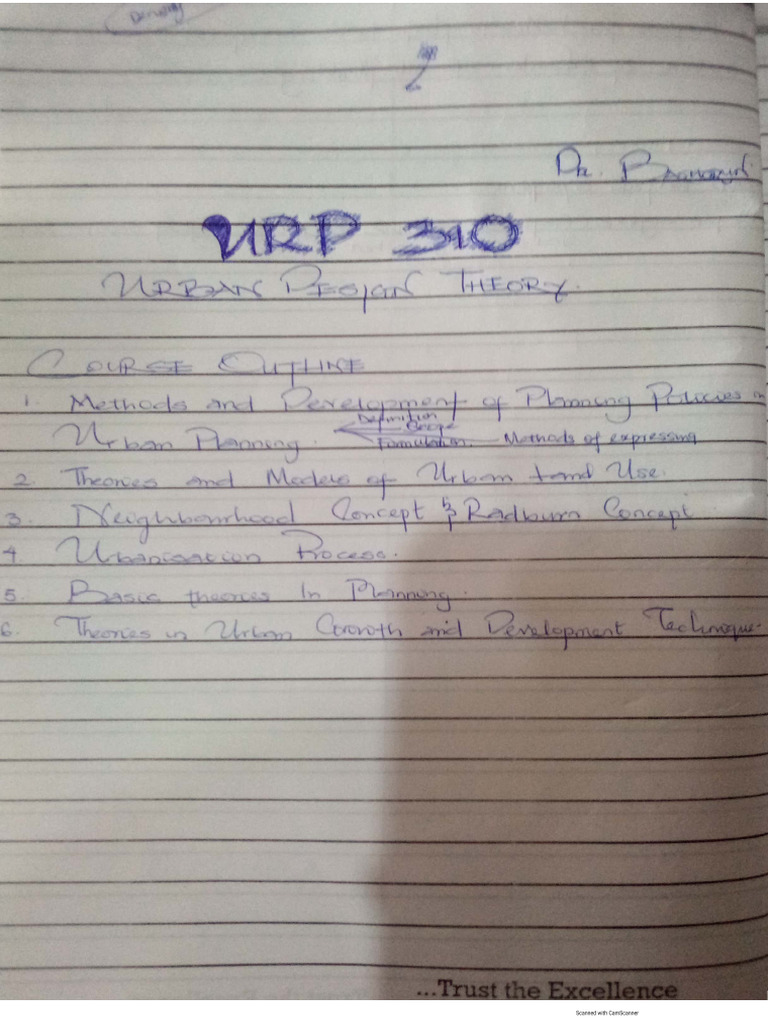 2
Dr.
URP 310
URBAN DESIGN THEORY.
COURSE OUTLINE
1. Methods and Development of Planning Policies in
Definition
Scope
Urban Planning. Formulation. Methods of expressing
2. Theories and Models of Urban Land Use.
3. Neighbourhood Concept & Radburn Concept
4 Urbanisation Process.
5. Basic theories In Planning.
6. Theories in Urban Growth and Development Technique.
...Trust the Excellence
Scanned with CamScanner